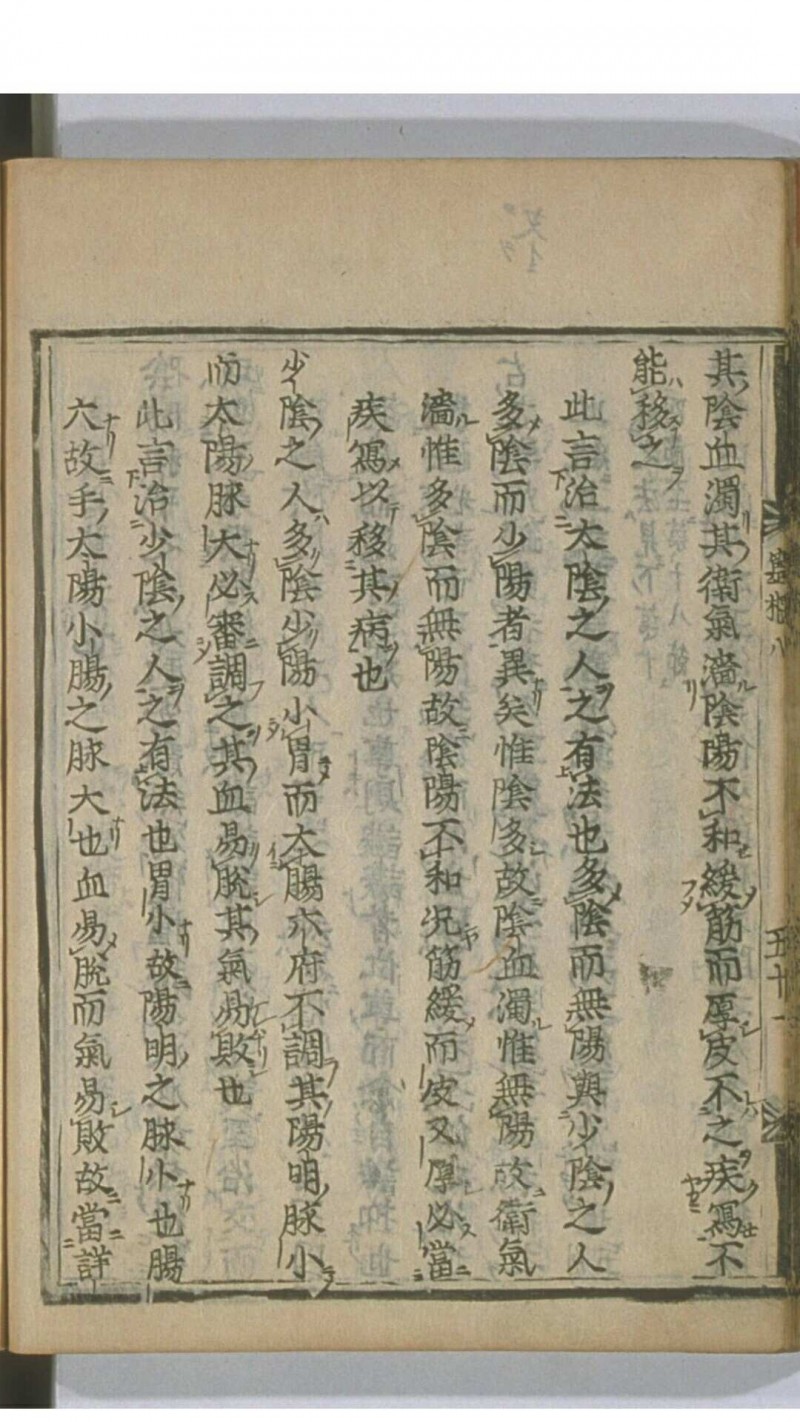 其陰血濁其衛氣濇陰陽不和緩筋而厚皮不之疾瀉不
能移之
此言治太陰之人之有法也多陰而無陽與少陰之人
多陰而少陽者異矣惟陰多故陰血濁惟無陽故衛氣
濇惟多陰而無陽故陰陽不和况筋緩而皮又厚必當
疾瀉以移其病也
少陰之人多陰少陽小胃而大腸六府不調其陽明脉小
而太陽脉大必審調之其血易脫其氣易敗也
此言治少陰之人之有法也胃小故陽明之脉小也腸
六故手太陽小腸之脉大也血易脫而氣易敗故當詳
五十一